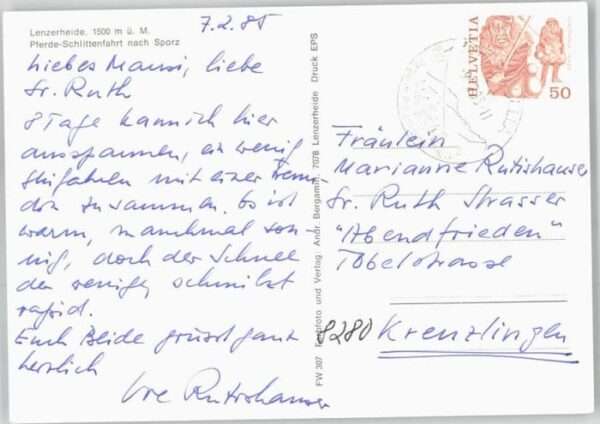 Lenzerheide, 1500 m ü. M.
Pferde-Schlittenfahrt nach Sporz
7.2.85
Liebes Mausi, liebe
Sr. Ruth
8 Tage kann ich hier
ausspannen, ein wenig
skifahren mit einer Freun-
din zusammen. Es ist
warm, manchmal son-
nig, doch der Schnee
der wenige, schmilzt
rapid.
Euch Beide grüsst ganz
herzlich
Rutishauser
FW 307 Foto und Verlag Andr. Bergamin, 7078 Lenzerheide Druck EPS
HELVETIA
50
Fräulein
Marianne Rutishauser
Sr. Ruth Strasser
"Abendfrieden"
Tobelstrasse
8280 Kreuzlingen